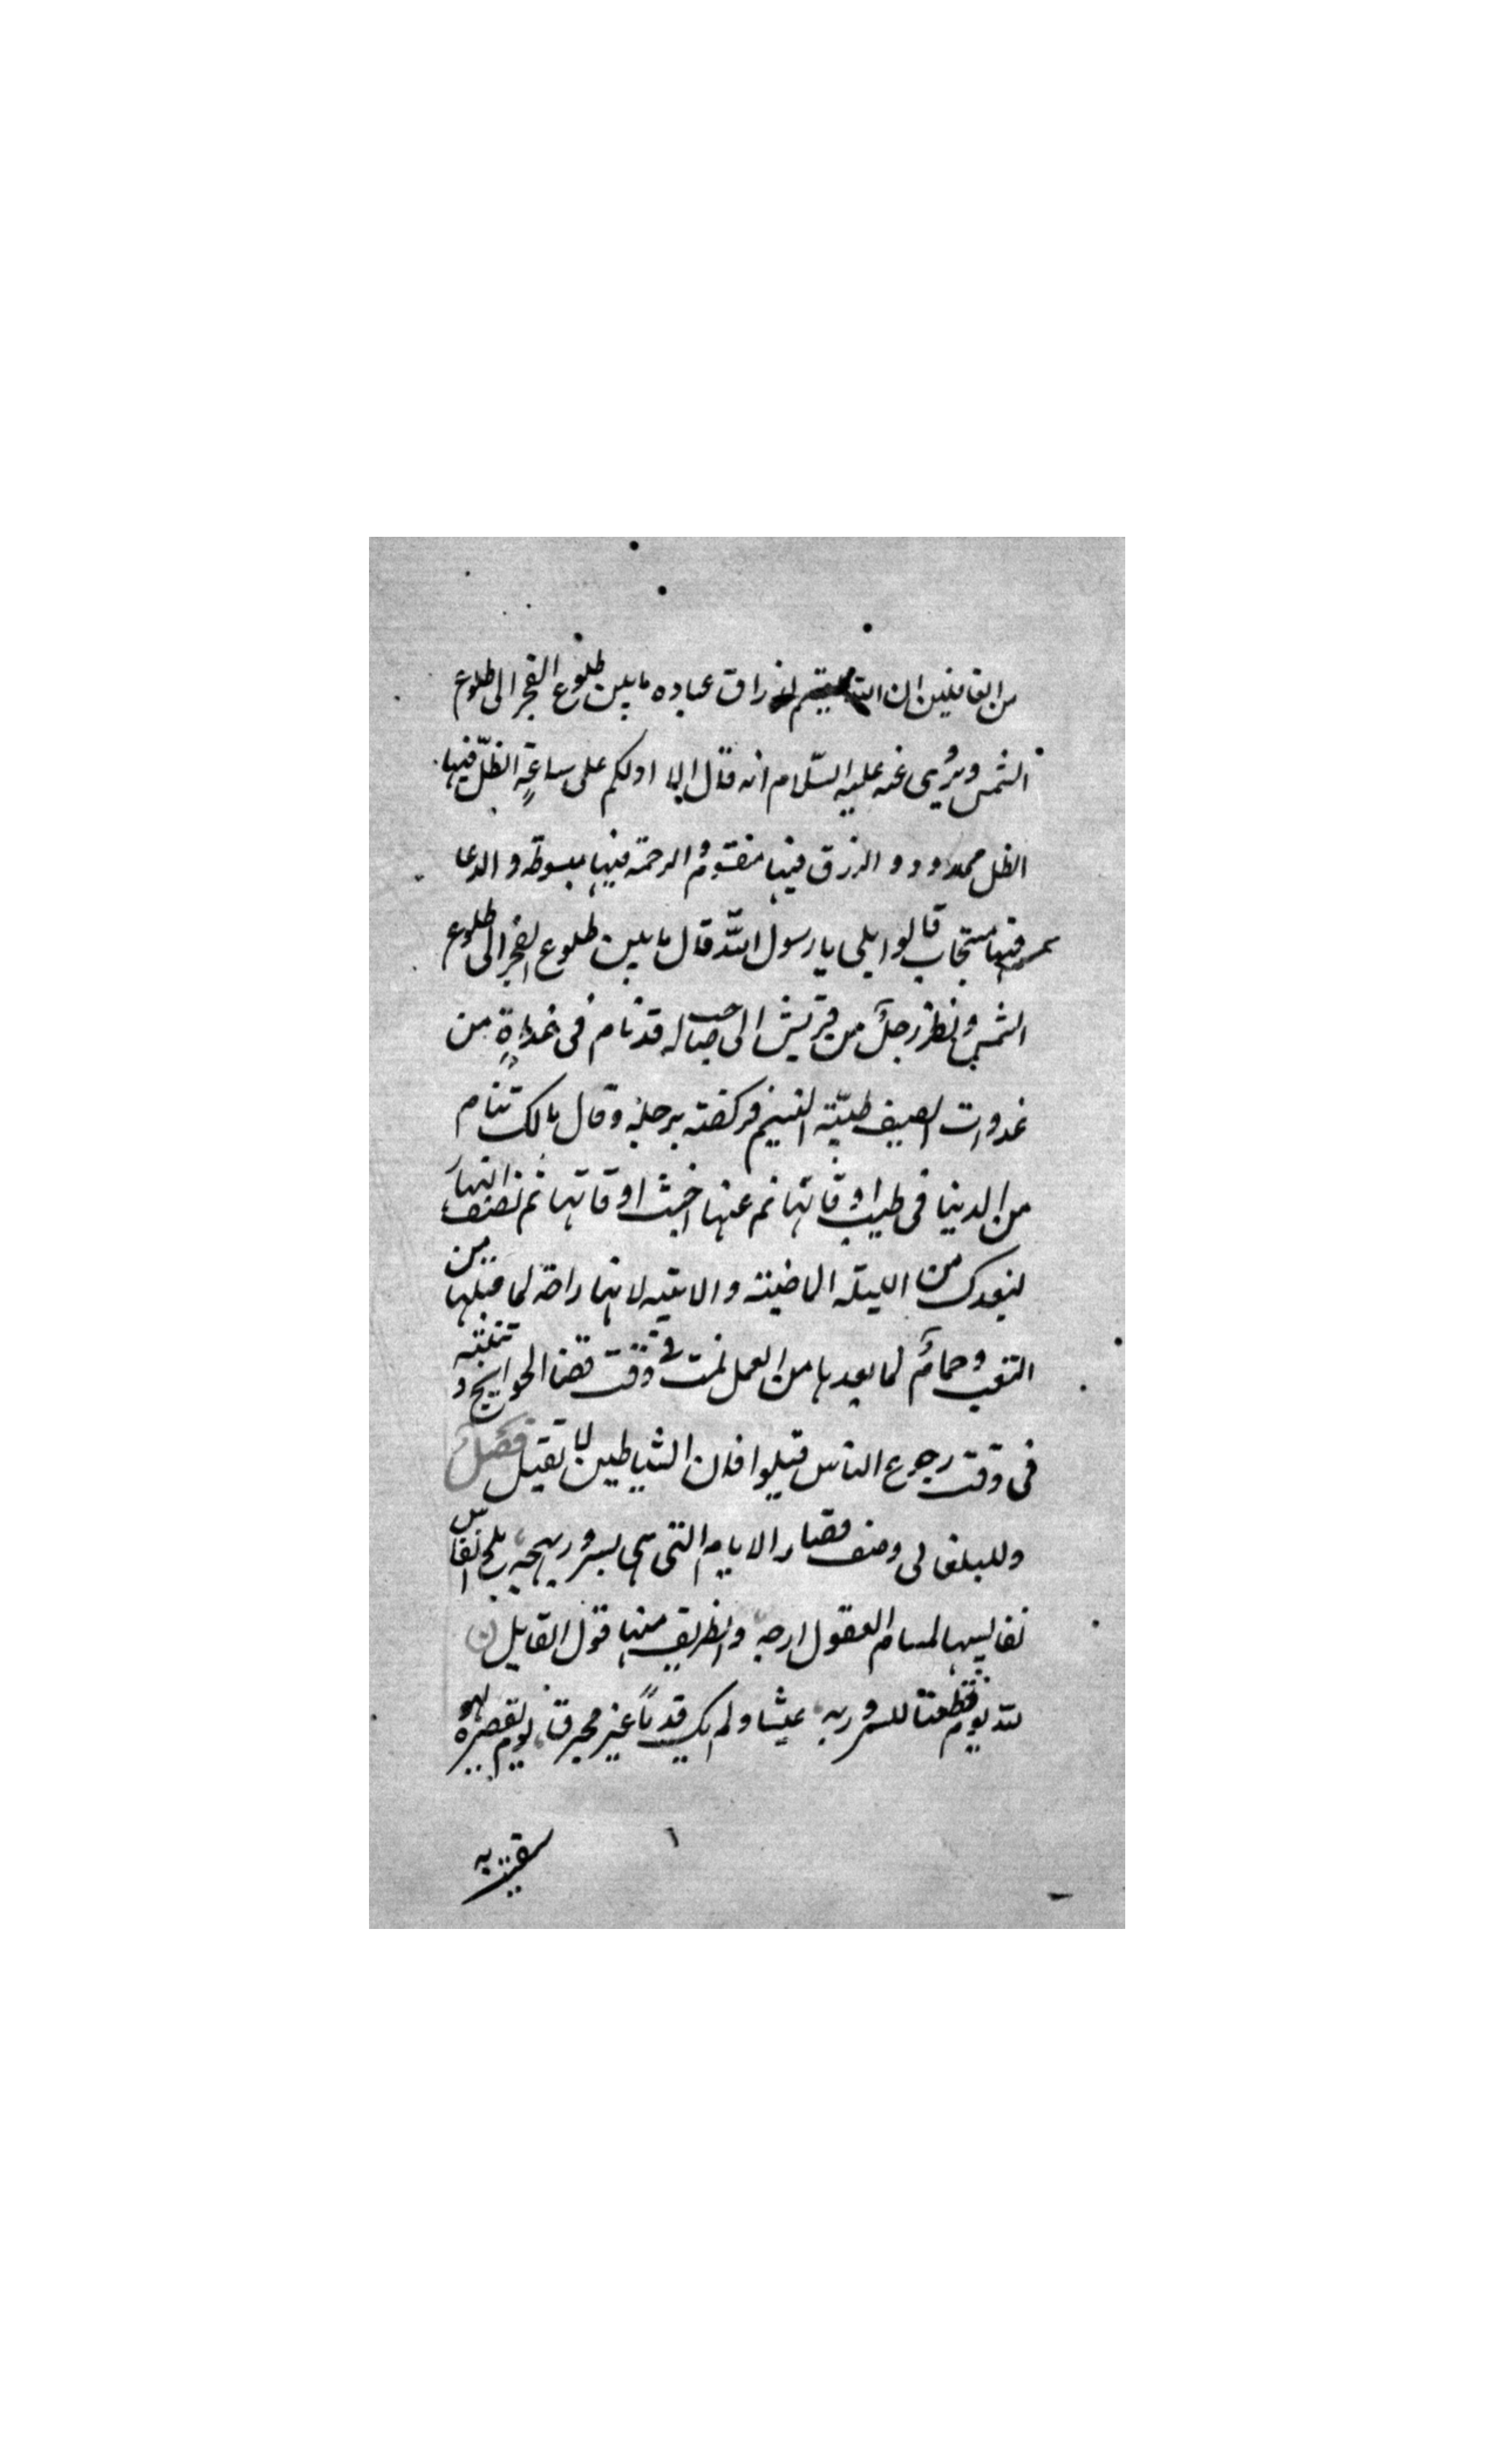 من الغافلين ان الله يقسم ارزاق عباده ما بين طلوع الفجر الى طلوع
الشمس ويروى عنه عليه السّلام انه قال الا ادلكم على ساعةٍ الظلّ فيها
الظل ممدود والرزق فيها مقسومٌ والرحمة فيها مبسوطة والدعا
فيها مستجاب قالوا بلى يا رسول اللّه قال ما بين طلوع الفجر الى طلوع
الشمس ونظر رجلٌ من قريش الى صاحب له قد نام فى غداةٍ من
غدوات الصيف طيّبة النسيم فركضه برجله وقال مالك تنام
من الدنيا فى طيب اوقاتها نم عنها اخبث اوقاتها نم نصف النهار
لبعدك من الليلة الماضية والاتيه لانها راحة لما قبلها من
التعب وحمامٌ لما بعدها من العمل نمت فى وقت قضا الحوايج وتنتبه
فى وقت رجوع الناس قيلوا فان الشياطين لا تقيل فصل
وللبلغا فى وصف قصار الايام التى هى بسرور بهجة
نفايسها لمسام العقول ارجه والطريف منها قول القايل
للّه يوم قطعنا للسرور به عيشا ولم يك قدمًا غير يوم لهو
سقيت به
١